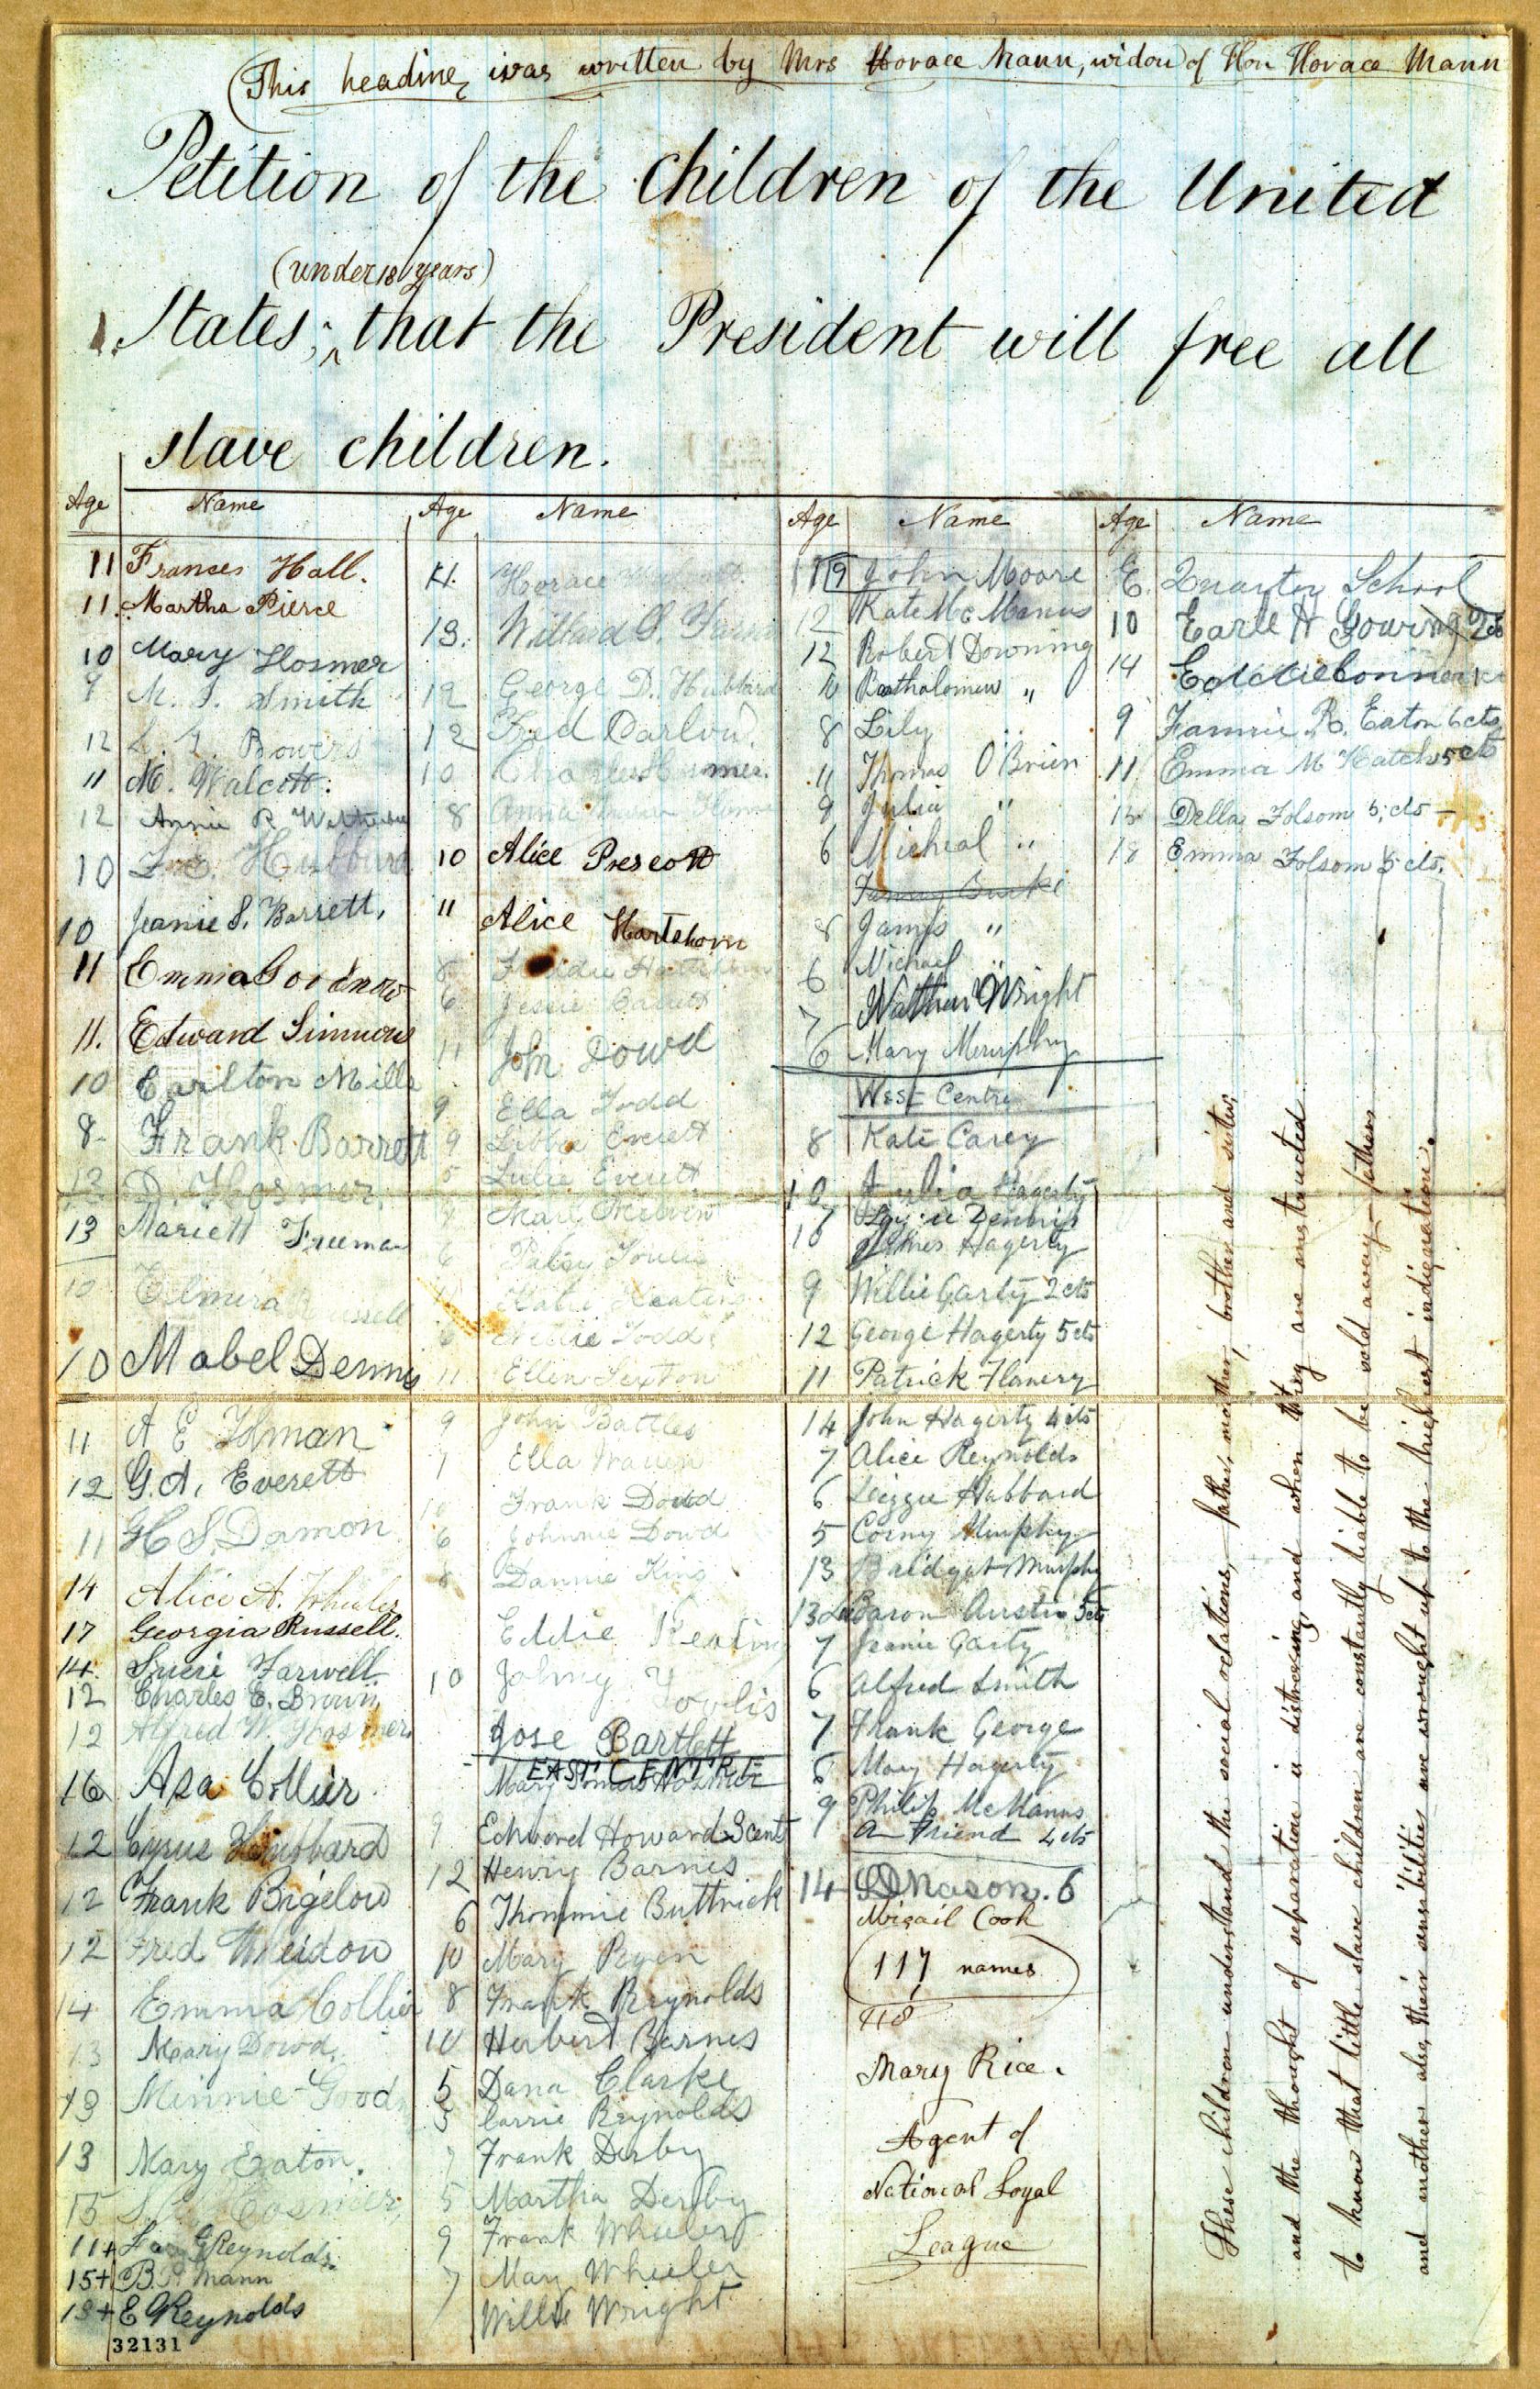 (This heading was written by Mrs Horace Mann, widow of Hon Horace Mann
Petition of the children of the United
(under 18 years)
States; ^ that the President will free all
slave children.
Age Name
11 Frances Hall.
11. Martha Pierce
10 Mary Hosmer
9 M. I. Smith
12 Bowers
11 M. Walcott.
12 Annie R
10 Hubbard
10 Jeanie S. Barrett,
11 Emma Goodnow
11. Edward Simmons
10 Carlton Mills
8 Frank Barrett
12 D. Hosmer.
13 Mariett Freeman
10 Elmira Russell
10 Mabel Dennis
11 A E
12 G. A. Everett
11 H S. Damon
14 Alice A. Wheeler
17 Georgia Russell.
14. Farwell
12 Charles E. Brown
12 Alfred W. Hosmer
16 Asa Collier.
12 Cyrus Hubbard
12 Frank Bigelow
12 Fred
14 Emma Collier
13 Mary Dowd.
13 Minnie
13 Mary Eaton.
15
11+ Reynolds.
15+ B. P. Mann
13+ E Reynolds
32131
Age Name
11. Horace
13. Willard
12 George D. Hubbard
12 Fred
10 Charles
8 Anna
10 Alice Prescott
11 Alice Hartshorn
8
6 Jessie
11 John Dowd
9 Ella Todd
9 Libbie Everett
5 Lulie Everett
6
Katie Keating
6 Nellie Todd
11 Ellen Sexton
9 John Battles
Ella Warren
10 Frank Dowd
6 Johnnie Dowd
8 Dannie King
Eddie Keating
10 Johny
Jose Bartlett
EAST CENTRE
Mary Hosmer
9 Edward Howard 3 cents
12 Henry Barnes
6 Thommie Buttrick
10 Mary
8 Frank Reynolds
10 Herbert Barnes
5 Dana Clarke
5 Carrie Reynolds
7 Frank Derby
5 Martha Derby
9 Frank Wheeler
7 Mary Wheeler
Willie Wright
Age Name
John Moore
12 Kate McManus
12 Robert Downing
Bartholomew "
8 Lily "
11 Thomas O'Brien
9 Julia "
6 Micheal "
Fanny Burke
8 James "
6 Michael "
7 Wright
6 Mary Murphy
West Centre
8 Kate Carey
10 Julia Hagerty
7 Dennis
10 James Hagerty
9 Willie Garty 2 cts
12 George Hagerty 5 cts
11 Patrick Flanery
14 John Hagerty 4 cts
7 Alice Reynolds
6 Lizzie Hubbard
5 Corny Murphy
13 Bridget Murphy
13 Austin 5 cts
7 Jeanie Garty
6 Alfred Smith
7 Frank George
6 Mary Hagerty
9 Philip McManus
a Friend 4 cts
14 Nason. 6
Abigail Cook
117 names
118
Mary Rice.
Agent of
National Loyal
League
Age Name
E. Quarter School
10 Earle H Gowing
14 Eddie
9 Fannie R. Eaton 6 cts
11 Emma M Hatch 5 cts
Della Folsom 5, cts
18 Emma Folsom 5 cts.
These children understand the social relations, father, mother, brother and sister;
and the thought of separation is distressing and when they are instructed
to know that little slave children are constantly liable to be sold away — fathers
and mothers also, their sensibilities are wrought up to the highest indignation.